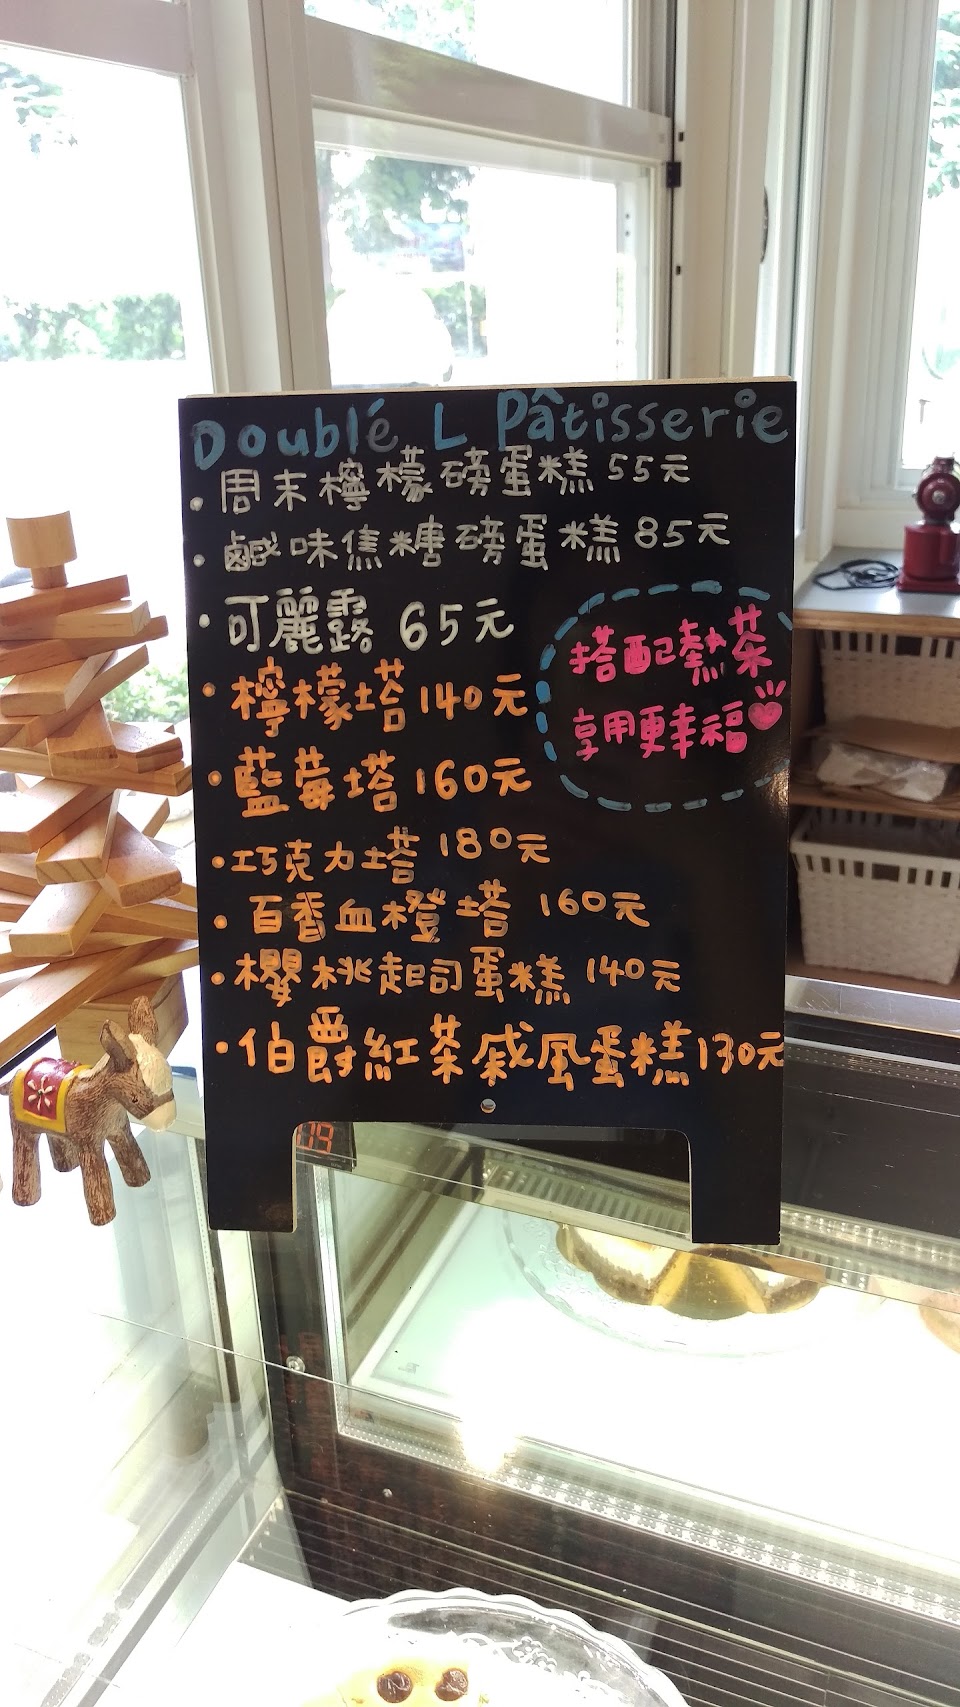 Doublé L Pâtisserie
• 周末檸檬磅蛋糕 55元
• 鹹味焦糖磅蛋糕 85元
• 可麗露 65元
• 檸檬塔 140元
• 藍莓塔 160元
• 巧克力塔 180元
• 百香血橙塔 160元
• 櫻桃起司蛋糕 140元
• 伯爵紅茶戚風蛋糕 130元
搭配熱茶
享用更幸福
09